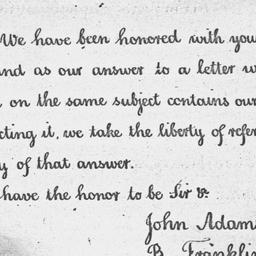 We have been honored with you
and as our answer to a letter w
on the same subject contains our
cting it, we take the liberty of refer
y of that answer.
have the honor to be Sir &.
John Adam
B. Franklin